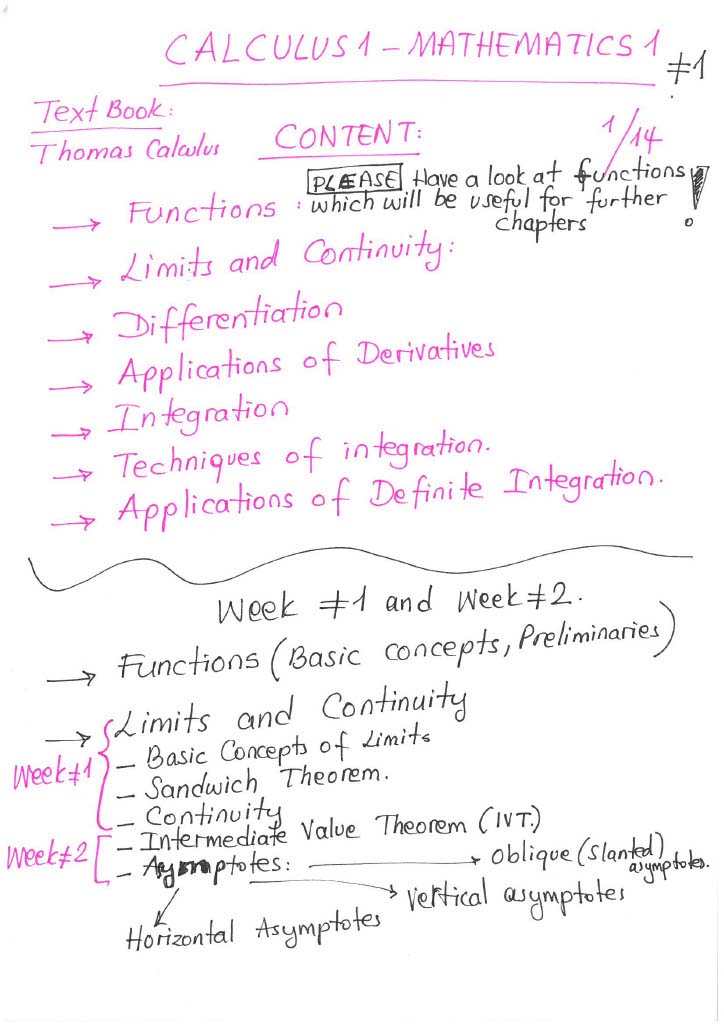 CALCULUS 1 – MATHEMATICS 1
#1
Text Book:
Thomas Calculus
CONTENT:
1/14
→ Functions : PLEASE Have a look at functions !
which will be useful for further
chapters
→ Limits and Continuity:
→ Differentiation
→ Applications of Derivatives
→ Integration
→ Techniques of integration.
→ Applications of Definite Integration.
Week #1 and Week #2.
→ Functions (Basic concepts, Preliminaries)
→ Limits and Continuity
Week #1
– Basic Concepts of Limits
– Sandwich Theorem.
– Continuity
Week #2
– Intermediate Value Theorem (IVT.)
– Asymptotes: → Oblique (Slanted) asymptotes.
→ Vertical asymptotes
Horizontal Asymptotes